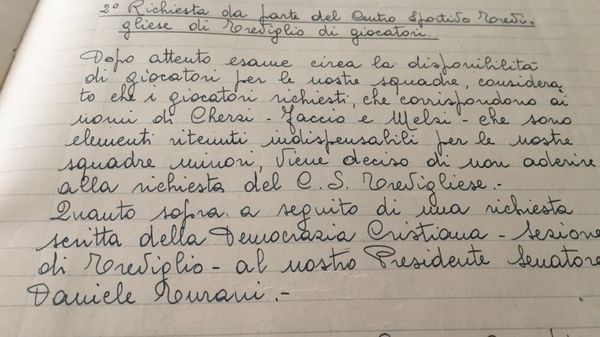 2º Richiesta da parte del Centro Sportivo Trevi-
gliese di Treviglio di giocatori.
Dopo attento esame circa la disponibilità
di giocatori per le nostre squadre, considera-
to che i giocatori richiesti, che corrispondono ai
nomi di Chersi - Faccio e Melsi - che sono
elementi ritenuti indispensabili per le nostre
squadre minori, viene deciso di non aderire
alla richiesta del C. S. Trevigliese.-
Quanto sopra a seguito di una richiesta
scritta della Democrazia Cristiana - Sezione
di Treviglio - al nostro Presidente Senatore
Daniele Turani.-